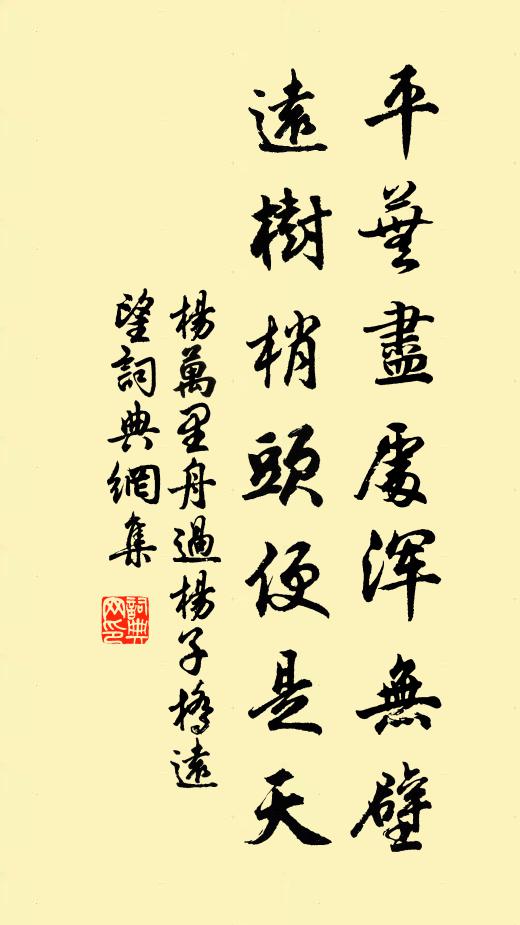 平蕪盡處渾無壁
遠樹梢頭便是天
楊萬里舟過楊子橋遠
望詞典網集
詞典
网印